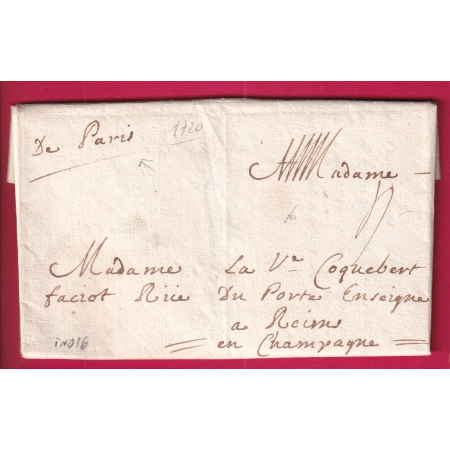 De Paris
1720
Madame
Madame La Ve Coquebert
faciot Rüe Du Porte Enseigne
a Reims
en Champagne
IND16